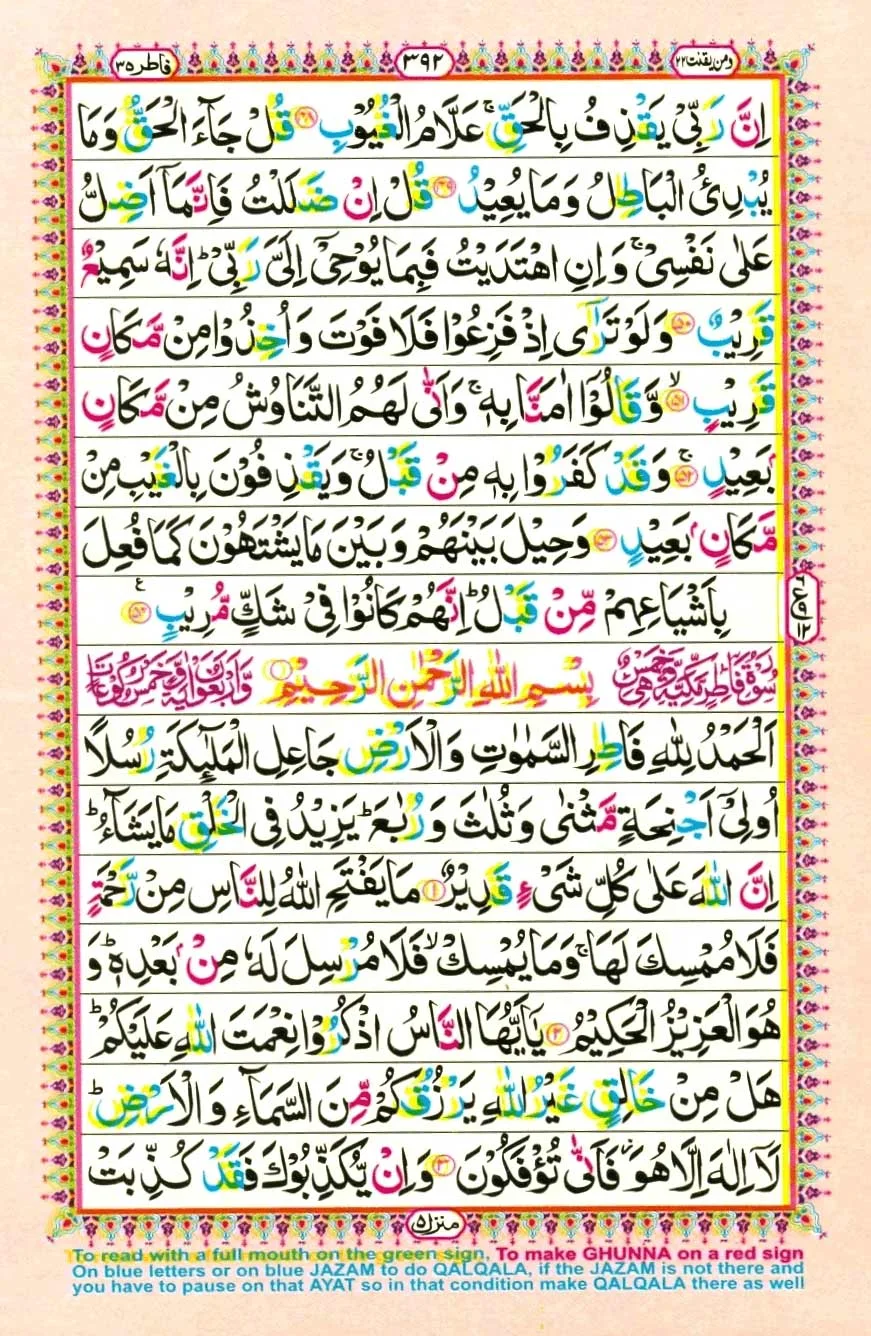 فاطر ٣٥ ٣٩٢ ومن يقنت ٢٢
اِنَّ رَبِّیْ يَقْذِفُ بِالْحَقِّ ۚ عَلَّامُ الْغُيُوْبِ ﴿۴۸﴾ قُلْ جَآءَ الْحَقُّ وَمَا
يُبْدِئُ الْبَاطِلُ وَمَا يُعِيْدُ ﴿۴۹﴾ قُلْ اِنْ ضَلَلْتُ فَاِنَّمَآ اَضِلُّ
عَلٰى نَفْسِیْ ۚ وَاِنِ اهْتَدَيْتُ فَبِمَا يُوْحِیْٓ اِلَیَّ رَبِّیْ ؕ اِنَّهٗ سَمِيْعٌ
قَرِيْبٌ ﴿۵۰﴾ وَلَوْ تَرٰٓى اِذْ فَزِعُوْا فَلَا فَوْتَ وَاُخِذُوْا مِنْ مَّكَانٍ
قَرِيْبٍ ﴿۵۱﴾ ۙ وَّقَالُوْٓا اٰمَنَّا بِهٖ ۚ وَاَنّٰى لَهُمُ التَّنَاوُشُ مِنْ مَّكَانٍۢ
بَعِيْدٍ ﴿۵۲﴾ ۚ وَقَدْ كَفَرُوْا بِهٖ مِنْ قَبْلُ ۚ وَيَقْذِفُوْنَ بِالْغَيْبِ مِنْ
مَّكَانٍۢ بَعِيْدٍ ﴿۵۳﴾ وَحِيْلَ بَيْنَهُمْ وَبَيْنَ مَا يَشْتَهُوْنَ كَمَا فُعِلَ
بِاَشْيَاعِهِمْ مِّنْ قَبْلُ ؕ اِنَّهُمْ كَانُوْا فِیْ شَكٍّ مُّرِيْبٍ ﴿۵۴﴾ ع
سُوْرَةُ فَاطِرٍ مَّكِّيَّةٌ وَّهِیَ خَمْسٌ بِسْمِ اللّٰهِ الرَّحْمٰنِ الرَّحِيْمِ وَّاَرْبَعُوْنَ اٰيَةً وَّخَمْسُ رُكُوْعَاتٍ
اَلْحَمْدُ لِلّٰهِ فَاطِرِ السَّمٰوٰتِ وَالْاَرْضِ جَاعِلِ الْمَلٰٓئِكَةِ رُسُلًا
اُولِیْٓ اَجْنِحَةٍ مَّثْنٰى وَثُلٰثَ وَرُبٰعَ ؕ يَزِيْدُ فِی الْخَلْقِ مَا يَشَآءُ ؕ
اِنَّ اللّٰهَ عَلٰى كُلِّ شَیْءٍ قَدِيْرٌ ﴿۱﴾ مَا يَفْتَحِ اللّٰهُ لِلنَّاسِ مِنْ رَّحْمَةٍ
فَلَا مُمْسِكَ لَهَا ۚ وَمَا يُمْسِكْ ۙ فَلَا مُرْسِلَ لَهٗ مِنْۢ بَعْدِهٖ ؕ وَ
هُوَ الْعَزِيْزُ الْحَكِيْمُ ﴿۲﴾ يٰٓاَيُّهَا النَّاسُ اذْكُرُوْا نِعْمَتَ اللّٰهِ عَلَيْكُمْ ؕ
هَلْ مِنْ خَالِقٍ غَيْرُ اللّٰهِ يَرْزُقُكُمْ مِّنَ السَّمَآءِ وَالْاَرْضِ ؕ
لَآ اِلٰهَ اِلَّا هُوَ ۖ فَاَنّٰى تُؤْفَكُوْنَ ﴿۳﴾ وَاِنْ يُّكَذِّبُوْكَ فَقَدْ كُذِّبَتْ
منزل ۵
To read with a full mouth on the green sign, To make GHUNNA on a red sign
On blue letters or on blue JAZAM to do QALQALA, if the JAZAM is not there and
you have to pause on that AYAT so in that condition make QALQALA there as well